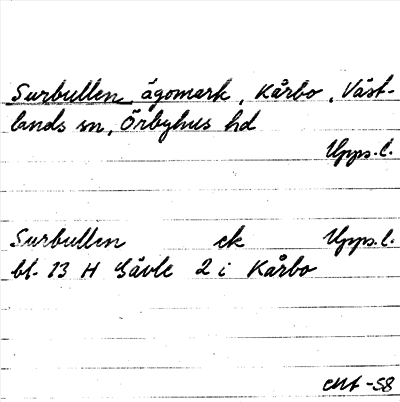 Surbullen ägomark, Kårbo, Väst-
lands sn, Örbyhus hd
Upps.l.
Surbullen ek Upps.l.
bl. 13 H Gävle 2 i Kårbo
-58